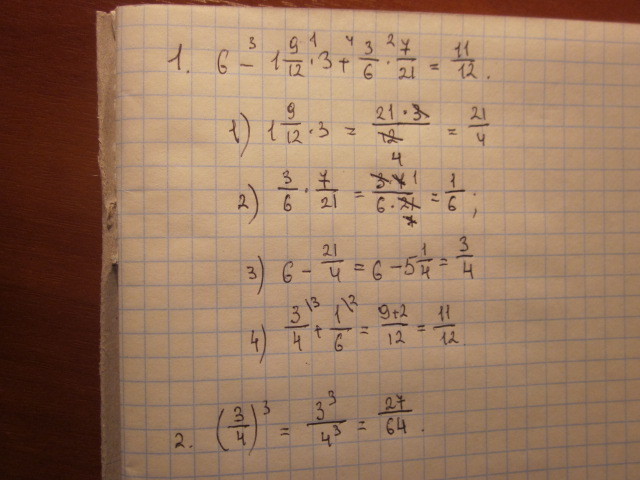 1. 6 -³ 1 9/12 ·¹ 3 +⁴ 3/6 ·² 7/21 = 11/12.
1) 1 9/12 · 3 = 21 · 3/12 4 = 21/4
2) 3/6 · 7/21 = 3 · 7 1/6 · 21 7 = 1/6;
3) 6 - 21/4 = 6 - 5 1/4 = 3/4
4) 3\3/4 + 1\2/6 = 9+2/12 = 11/12
2. (3/4)³ = 3³/4³ = 27/64.